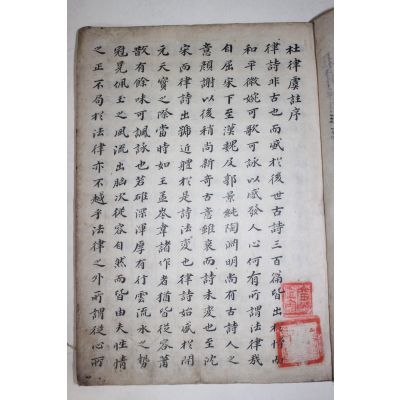 杜律虞註序
律詩非古也而盛於後世古詩三百篇皆出於情而
和平微婉可歌可詠以感發人心何有所謂法律哉
自屈宋下至漢魏及郭景純陶淵明尚有古詩人之
意顔謝以後稍尚新奇古意雖衰而詩未変也至沈
宋而律詩出號近軆於是詩法変也律詩始盛於開
元天寶之際當時如王孟岑韋諸作者猶皆從容蕭
散有餘味可諷詠也若雄深渾厚有行雲流水之勢
冠冕佩玉之風流出胸次從容自然而皆由夫性情
之正不局於法律亦不越乎法律之外所謂從心所